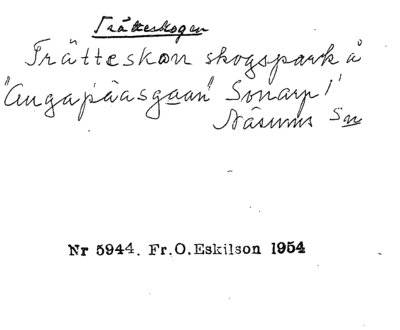 Trätteskogen
Trätteskon skogspark å
"Angapåasgaan" Sönarp i
Näsums Sn
Nr 5944. Fr.O.Eskilson 1954